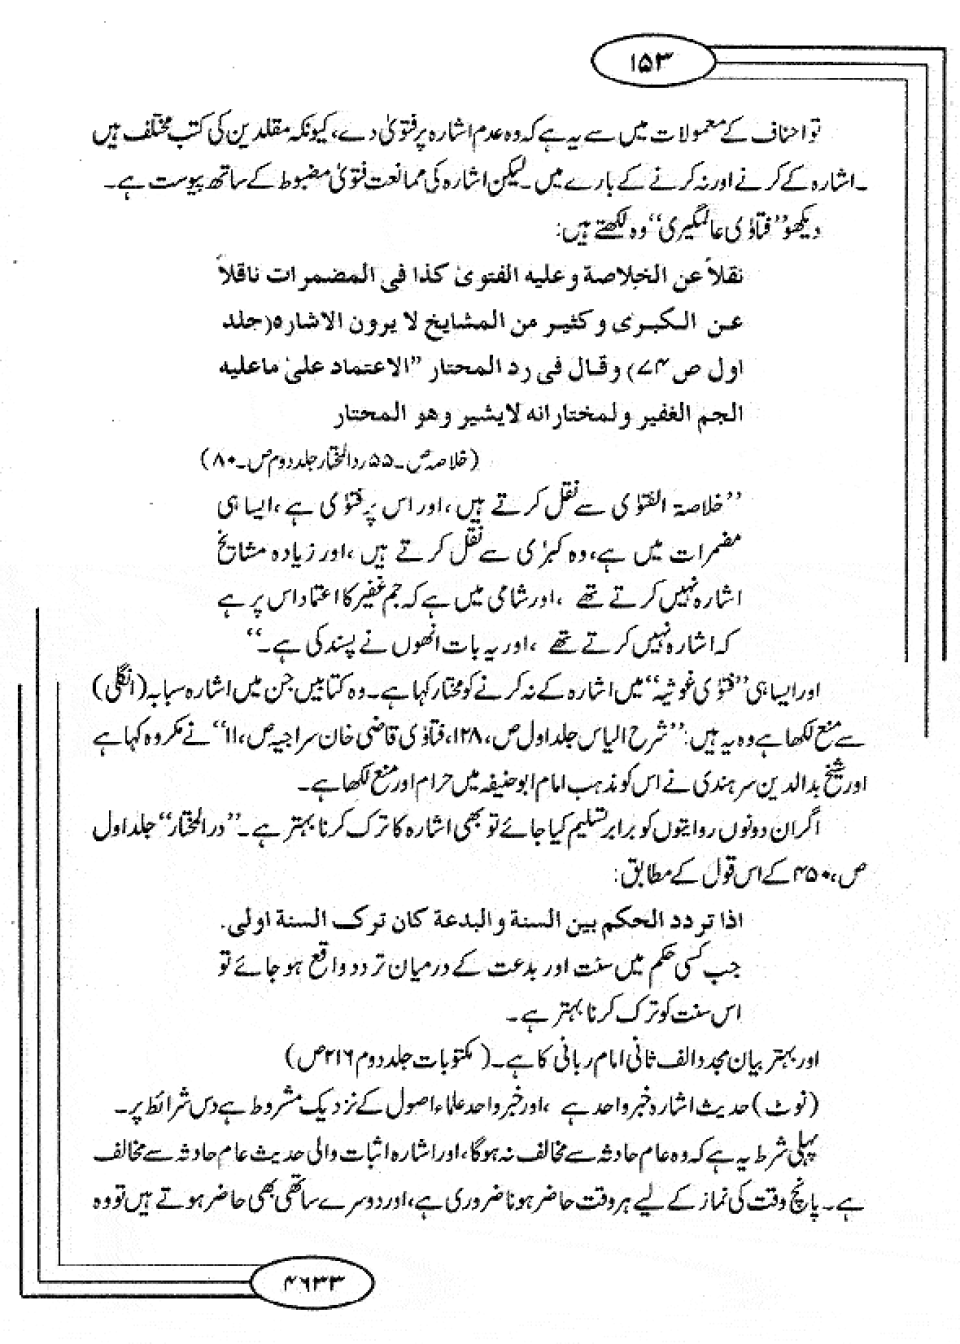 ۱۵۳
تو احناف کے معمولات میں سے یہ ہے کہ وہ عدم اشارہ پر فتویٰ دے، کیونکہ مقلدین کی کتب مختلف ہیں
۔ اشارہ کے کرنے اور نہ کرنے کے بارے میں۔ لیکن اشارہ کی ممانعت فتویٰ مضبوط کے ساتھ پیوست ہے۔
دیکھو ”فتاوٰی عالمگیری“ وہ لکھتے ہیں:
نقلاً عن الخلاصة وعلیه الفتویٰ کذا فی المضمرات ناقلاً
عن الکبریٰ وکثیر من المشایخ لا یرون الاشارہ (جلد
اول ص ۷۴) وقال فی رد المحتار ”الاعتماد علیٰ ماعلیه
الجم الغفیر ولمختارانه لایشیر وهو المحتار
(خلاصہ ص۔ ۵۵ ردالمختار جلد دوم ص۔ ۸۰)
”خلاصۃ الفتوٰی سے نقل کرتے ہیں، اور اس پر فتوٰی ہے، ایسا ہی
مضمرات میں ہے، وہ کبرٰی سے نقل کرتے ہیں، اور زیادہ مشایخ
اشارہ نہیں کرتے تھے، اور شامی میں ہے کہ جم غفیر کا اعتماد اس پر ہے
کہ اشارہ نہیں کرتے تھے، اور یہ بات انھوں نے پسند کی ہے۔“
اور ایسا ہی ”فتوٰی غوثیہ“ میں اشارہ کے نہ کرنے کو مختار کہا ہے۔ وہ کتابیں جن میں اشارہ سبابہ (انگلی)
سے منع لکھا ہے وہ یہ ہیں: ”شرح الیاس جلد اول ص، ۱۲۸، فتاوٰی قاضی خان سراجیہ ص، ۱۱“ نے مکروہ کہا ہے
اور شیخ بدالدین سرہندی نے اس کو مذہب امام ابوحنیفہ میں حرام اور منع لکھا ہے۔
اگر ان دونوں روایتوں کو برابر تسلیم کیا جائے تو بھی اشارہ کا ترک کرنا بہتر ہے۔ ”درالمختار“ جلد اول
ص، ۴۵۰ کے اس قول کے مطابق:
اذا تردد الحکم بین السنة والبدعة کان ترک السنة اولی.
جب کسی حکم میں سنت اور بدعت کے درمیان تردد واقع ہو جائے تو
اس سنت کو ترک کرنا بہتر ہے۔
اور بہتر بیان مجدد الف ثانی امام ربانی کا ہے۔ (مکتوبات جلد دوم ۲۱۶ ص)
(نوٹ) حدیث اشارہ خبر واحد ہے، اور خبر واحد علماء اصول کے نزدیک مشروط ہے دس شرائط پر۔
پہلی شرط یہ ہے کہ وہ عام حادثہ سے مخالف نہ ہوگا، اور اشارہ اثبات والی حدیث عام حادثہ سے مخالف
ہے۔ پانچ وقت کی نماز کے لیے ہر وقت حاضر ہونا ضروری ہے، اور دوسرے ساتھی بھی حاضر ہوتے ہیں تو وہ
۴۶۳۳